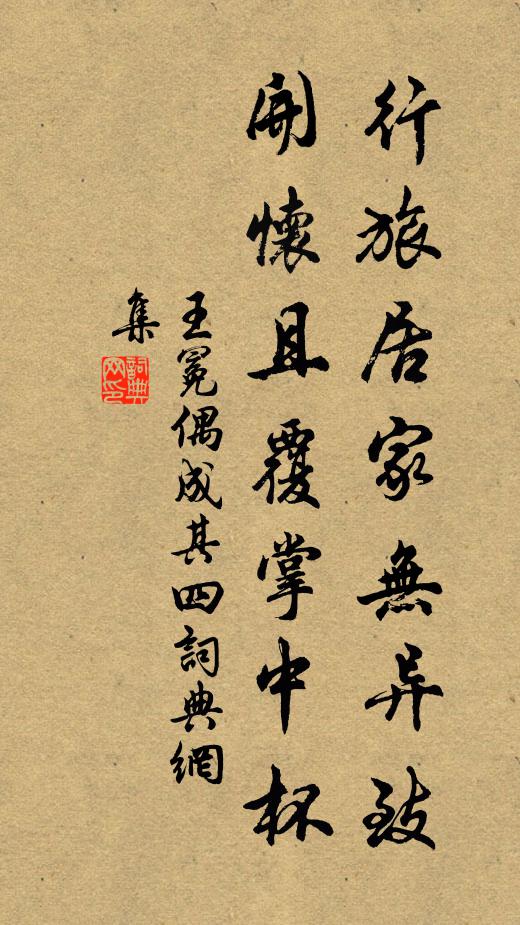 行旅居家無异致
開懷且覆掌中杯
王冕偶成其四詞典網
集
詞典
网印